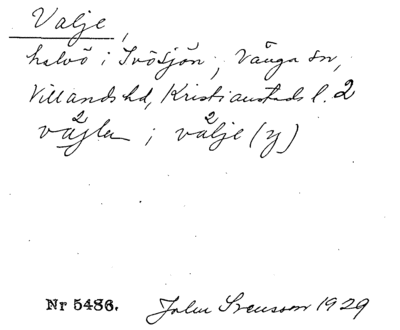 Valje,
halvö i Ivösjön, Vånga sn,
Villands hd, Kristianstads l. 2
väjla ; välje (y)
Nr 5486. John Svensson 1929